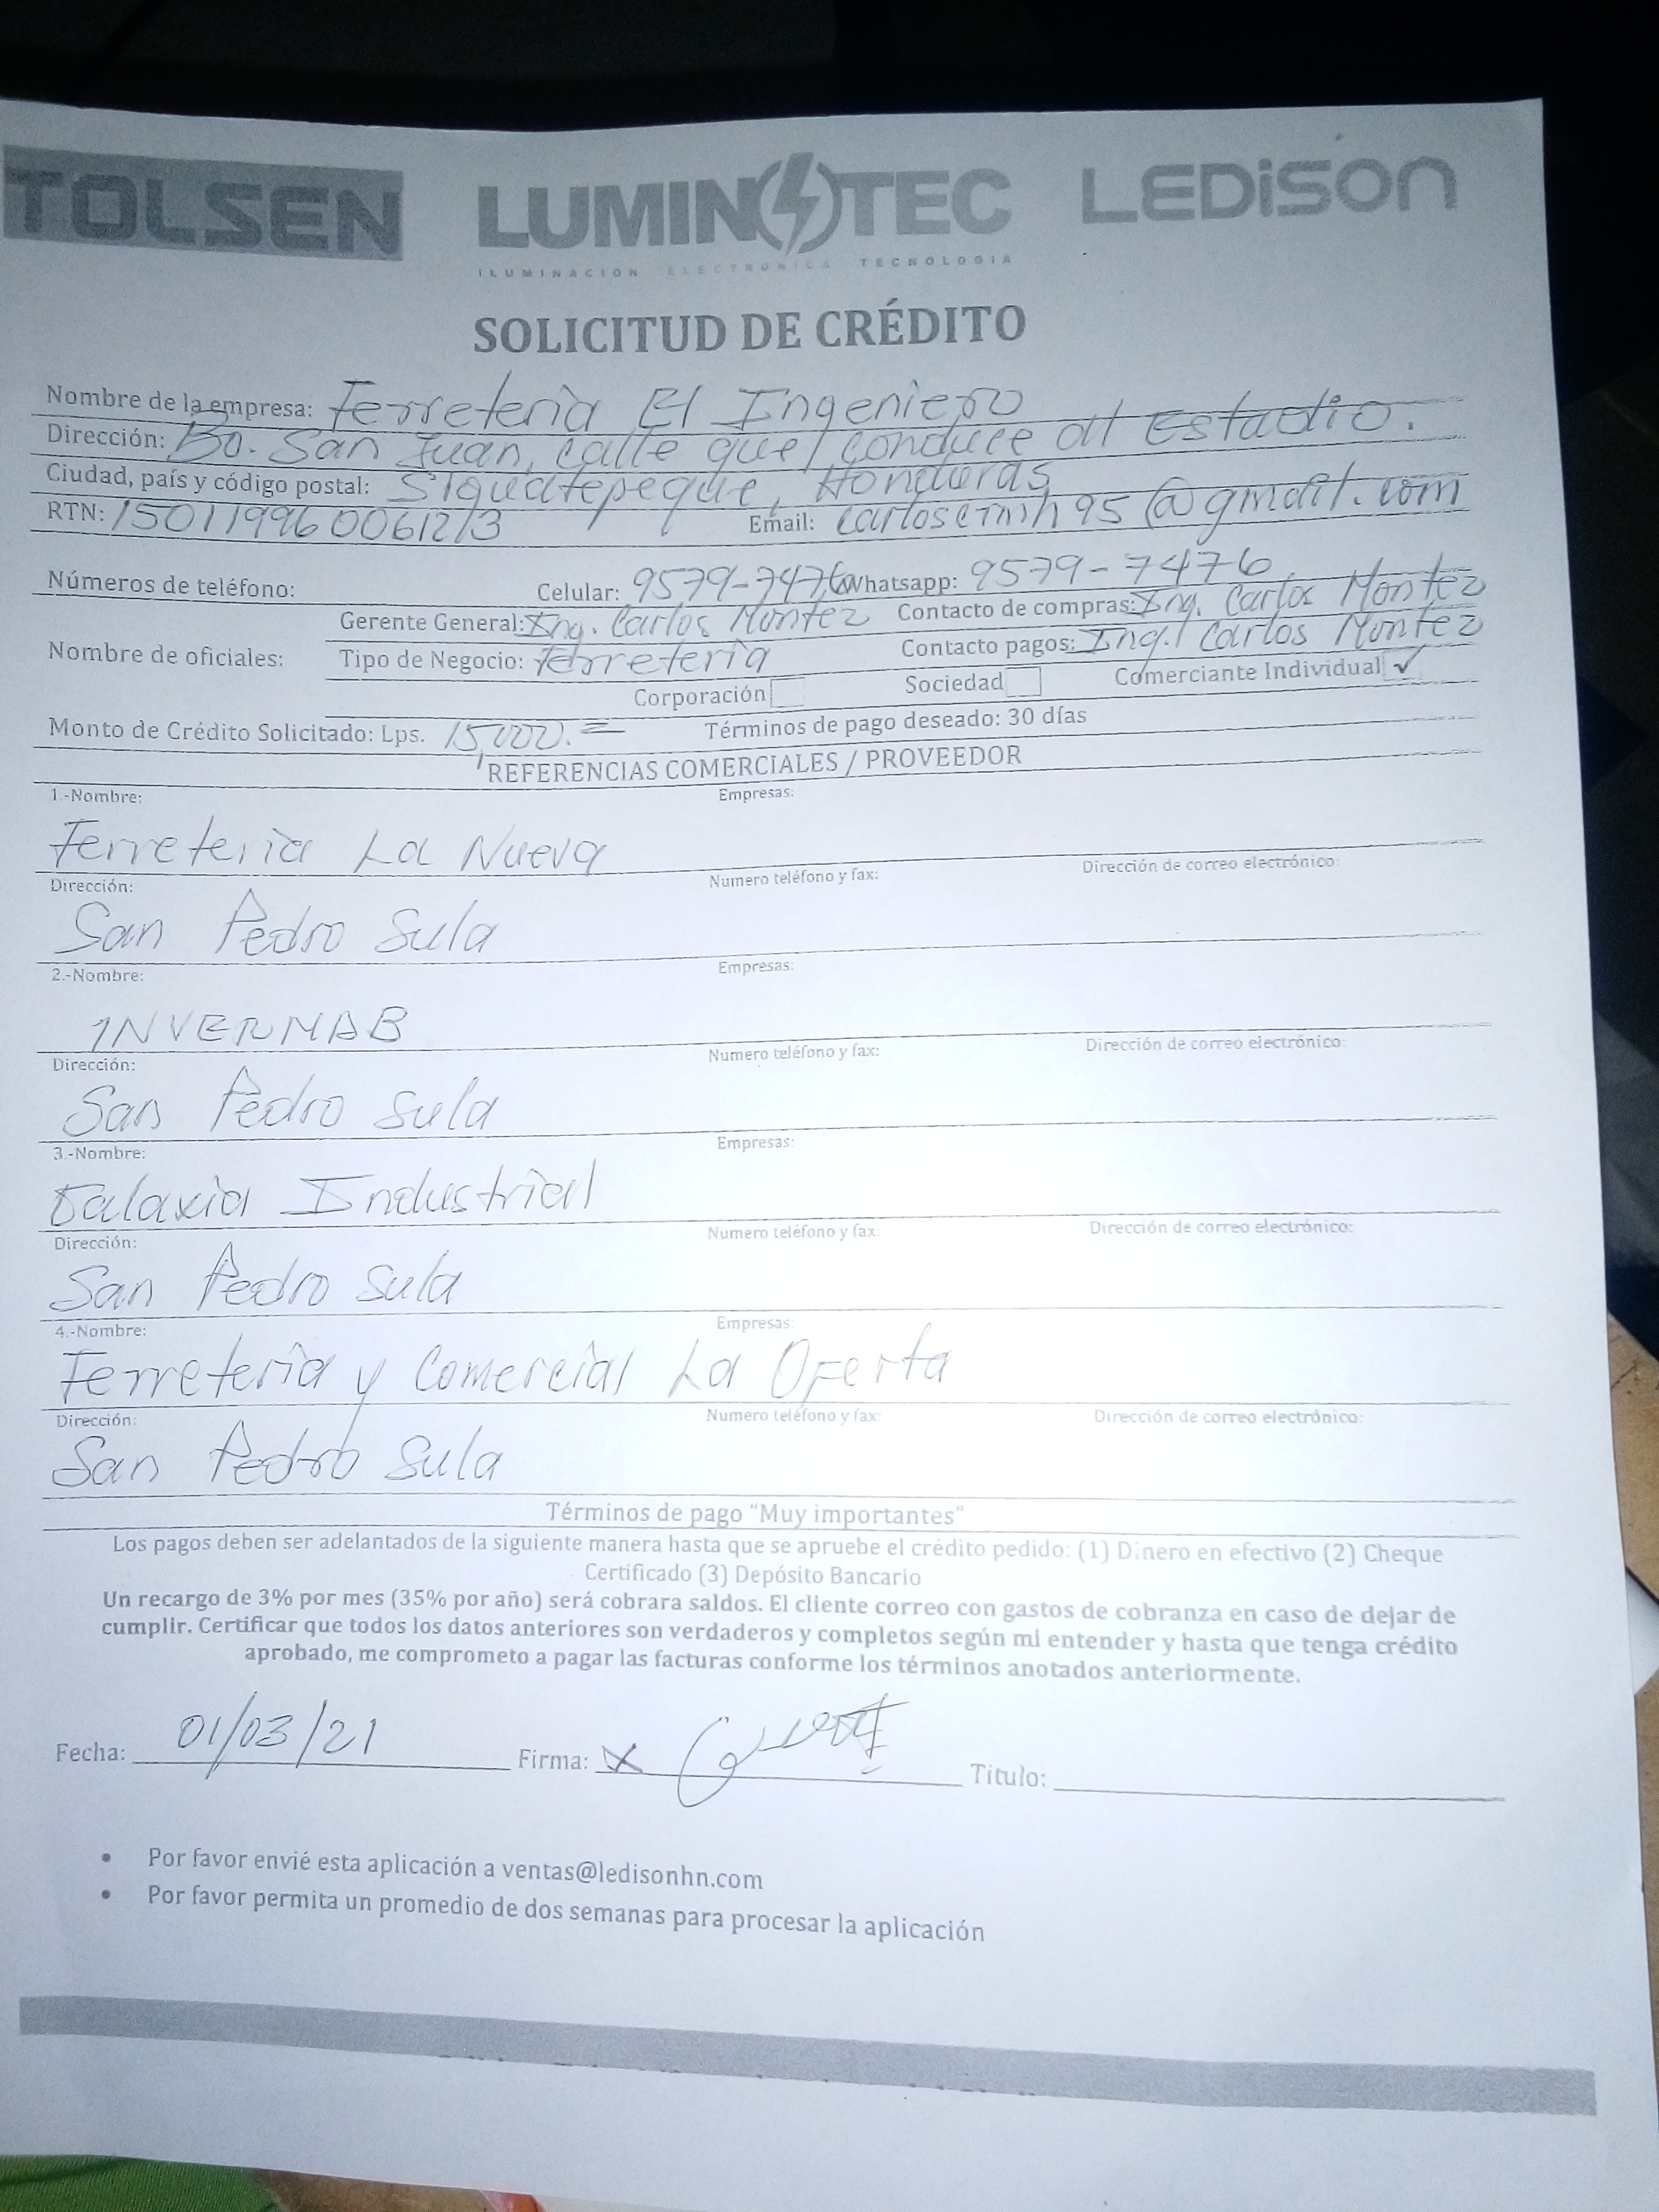 TOLSEN LUMINOTEC LEDiSON
ILUMINACIÓN ELECTRÓNICA TECNOLOGÍA
SOLICITUD DE CRÉDITO
Nombre de la empresa: Ferretería El Ingeniero
Dirección: Bo. San Juan, calle que conduce al Estadio.
Ciudad, país y código postal: Siguatepeque, Honduras
RTN: Email:
Números de teléfono: Celular: 9579-7476 Whatsapp: 9579-7476
Gerente General: Ing. Carlos Montez Contacto de compras: Ing. Carlos Montez
Nombre de oficiales: Tipo de Negocio: Ferretería Contacto pagos: Ing. Carlos Montez
Corporación Sociedad Comerciante Individual ✓
Monto de Crédito Solicitado: Lps. 15,000.= Términos de pago deseado: 30 días
REFERENCIAS COMERCIALES / PROVEEDOR
1.-Nombre: Empresas:
Ferretería La Nueva
Dirección: Numero teléfono y fax: Dirección de correo electrónico:
San Pedro Sula
2.-Nombre: Empresas:
INVERMAB
Dirección: Numero teléfono y fax: Dirección de correo electrónico:
San Pedro Sula
3.-Nombre: Empresas:
Galaxia Industrial
Dirección: Numero teléfono y fax: Dirección de correo electrónico:
San Pedro Sula
4.-Nombre: Empresas:
Ferretería y Comercial La Oferta
Dirección: Numero teléfono y fax: Dirección de correo electrónico:
San Pedro Sula
Términos de pago "Muy importantes"
Los pagos deben ser adelantados de la siguiente manera hasta que se apruebe el crédito pedido: (1) Dinero en efectivo (2) Cheque
Certificado (3) Depósito Bancario
Un recargo de 3% por mes (35% por año) será cobrara saldos. El cliente correo con gastos de cobranza en caso de dejar de
cumplir. Certificar que todos los datos anteriores son verdaderos y completos según mi entender y hasta que tenga crédito
aprobado, me comprometo a pagar las facturas conforme los términos anotados anteriormente.
Fecha: 01/03/21 Firma: x Titulo:
• Por favor envié esta aplicación a ventas@ledisonhn.com
• Por favor permita un promedio de dos semanas para procesar la aplicación